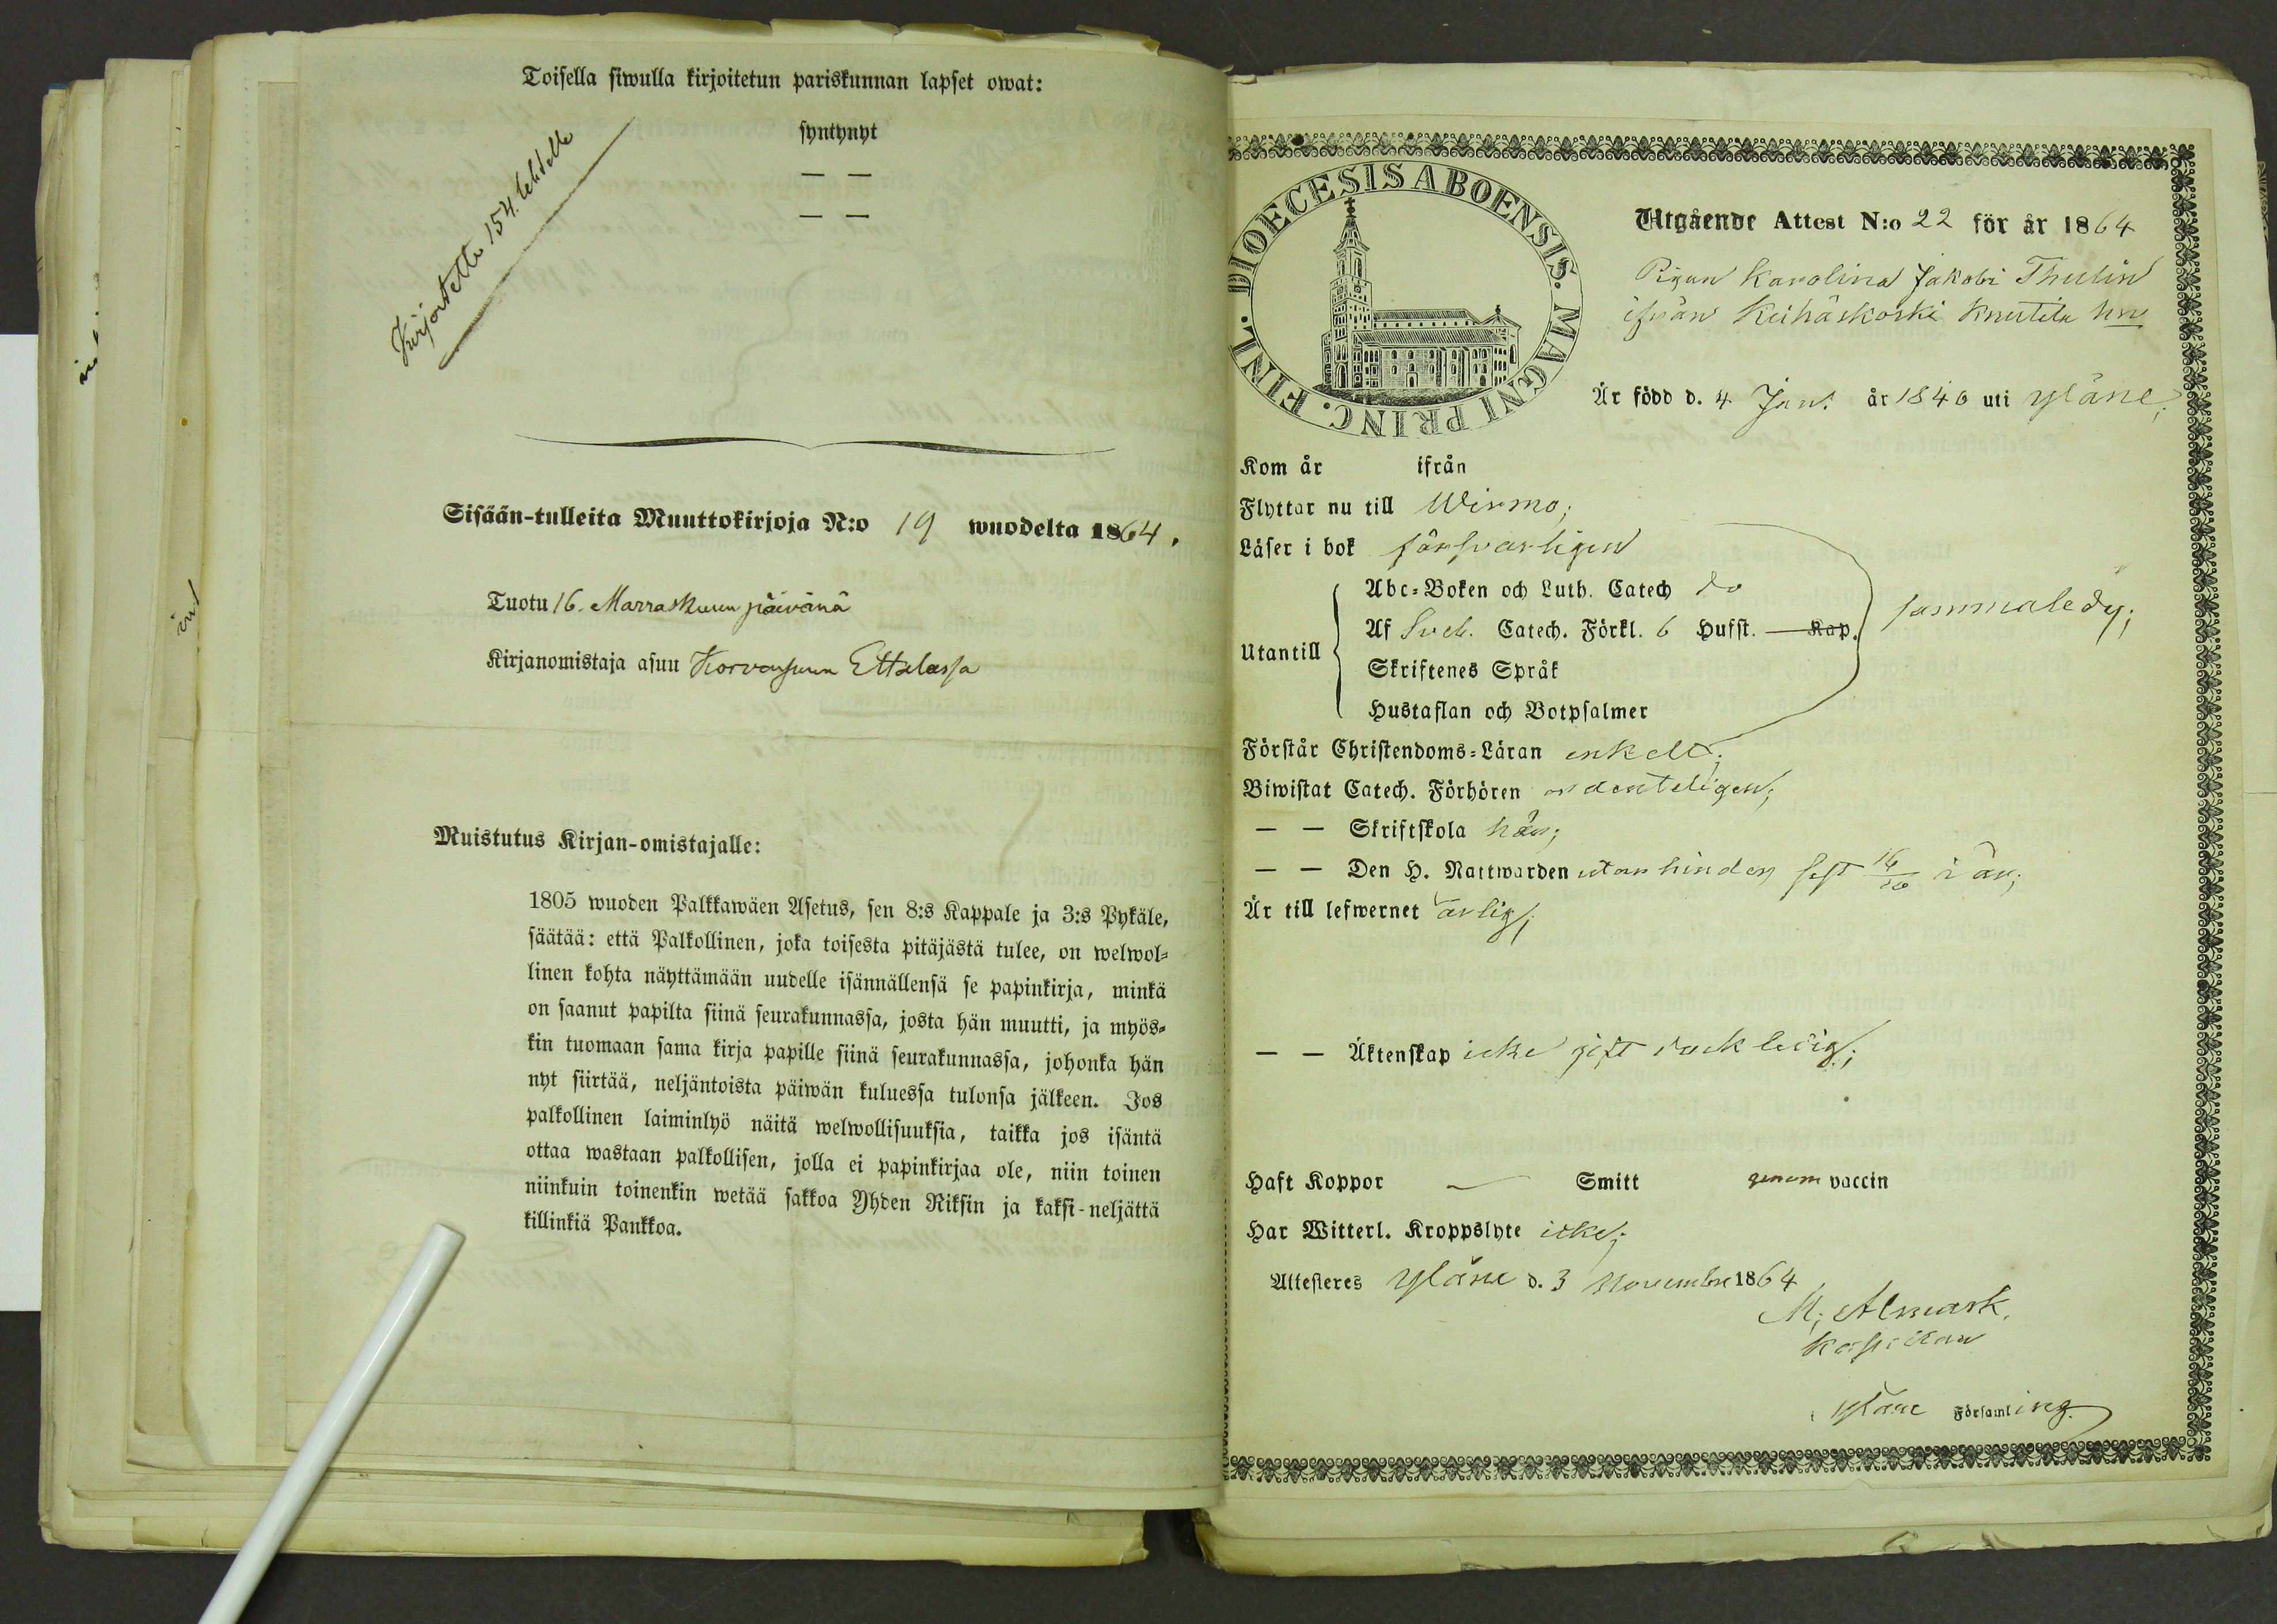 Toisella siwulla kirjoitetun pariskunnan lapset owat:
syntynyt
— —
— —
Kirjoitettu 154. lehdelle
Sisään-tulleita Muuttokirjoja N:o 19 wuodelta 1864.
Tuotu 16. Marraskuun päivänä
Kirjanomistaja asuu Korvensuun Ettalassa
Muistutus Kirjan-omistajalle:
1805 wuoden Palkkawäen Asetus, sen 8:s Kappale ja 3:s Pykäle,
säätää: että Palkollinen, joka toisesta pitäjästä tulee, on welwol-
linen kohta näyttämään uudelle isännällensä se papinkirja, minkä
on saanut papilta siinä seurakunnassa, josta hän muutti, ja myös-
kin tuomaan sama kirja papille siinä seurakunnassa, johonka hän
nyt siirtää, neljäntoista päiwän kuluessa tulonsa jälkeen. Jos
palkollinen laiminlyö näitä welwollisuuksia, taikka jos isäntä
ottaa wastaan palkollisen, jolla ei papinkirjaa ole, niin toinen
niinkuin toinenkin wetää sakkoa Yhden Riksin ja kaksi-neljättä
killinkiä Pankkoa.
FINL. DIOECESIS ABOENSIS. MAGNI PRINC.
Utgående Attest N:o 22 för år 1864
Pigan Karolina Jakobi Thulin
ifrån Keihäskoski Knutila hn
Är född d. 4 Jan. år 1840 uti Yläne;
Kom år ifrån
Flyttar nu till Wirmo;
Läser i bok försvarligen
Utantill
Abc-Boken och Luth. Catech do
Af Sveb. Catech. Förkl. 6 Hufst. — Kap.
sammaledes;
Skriftenes Språk
Hustaflan och Botpsalmer
Förstår Christendoms-Läran enkelt;
Biwistat Catech. Förhören ordenteligen;
— — Skriftskola här;
— — Den H. Nattwarden utan hinder sist 16/10 i år;
Är till lefwernet ärlig;
— — Äktenskap icke gift dock ledig;
Haft Koppor — Smitt genom vaccin
Har Witterl. Kroppslyte icke;
Attesteres Yläne d. 3 Novembre 1864
M. Almark.
Kapellan
i Yläne Församling.